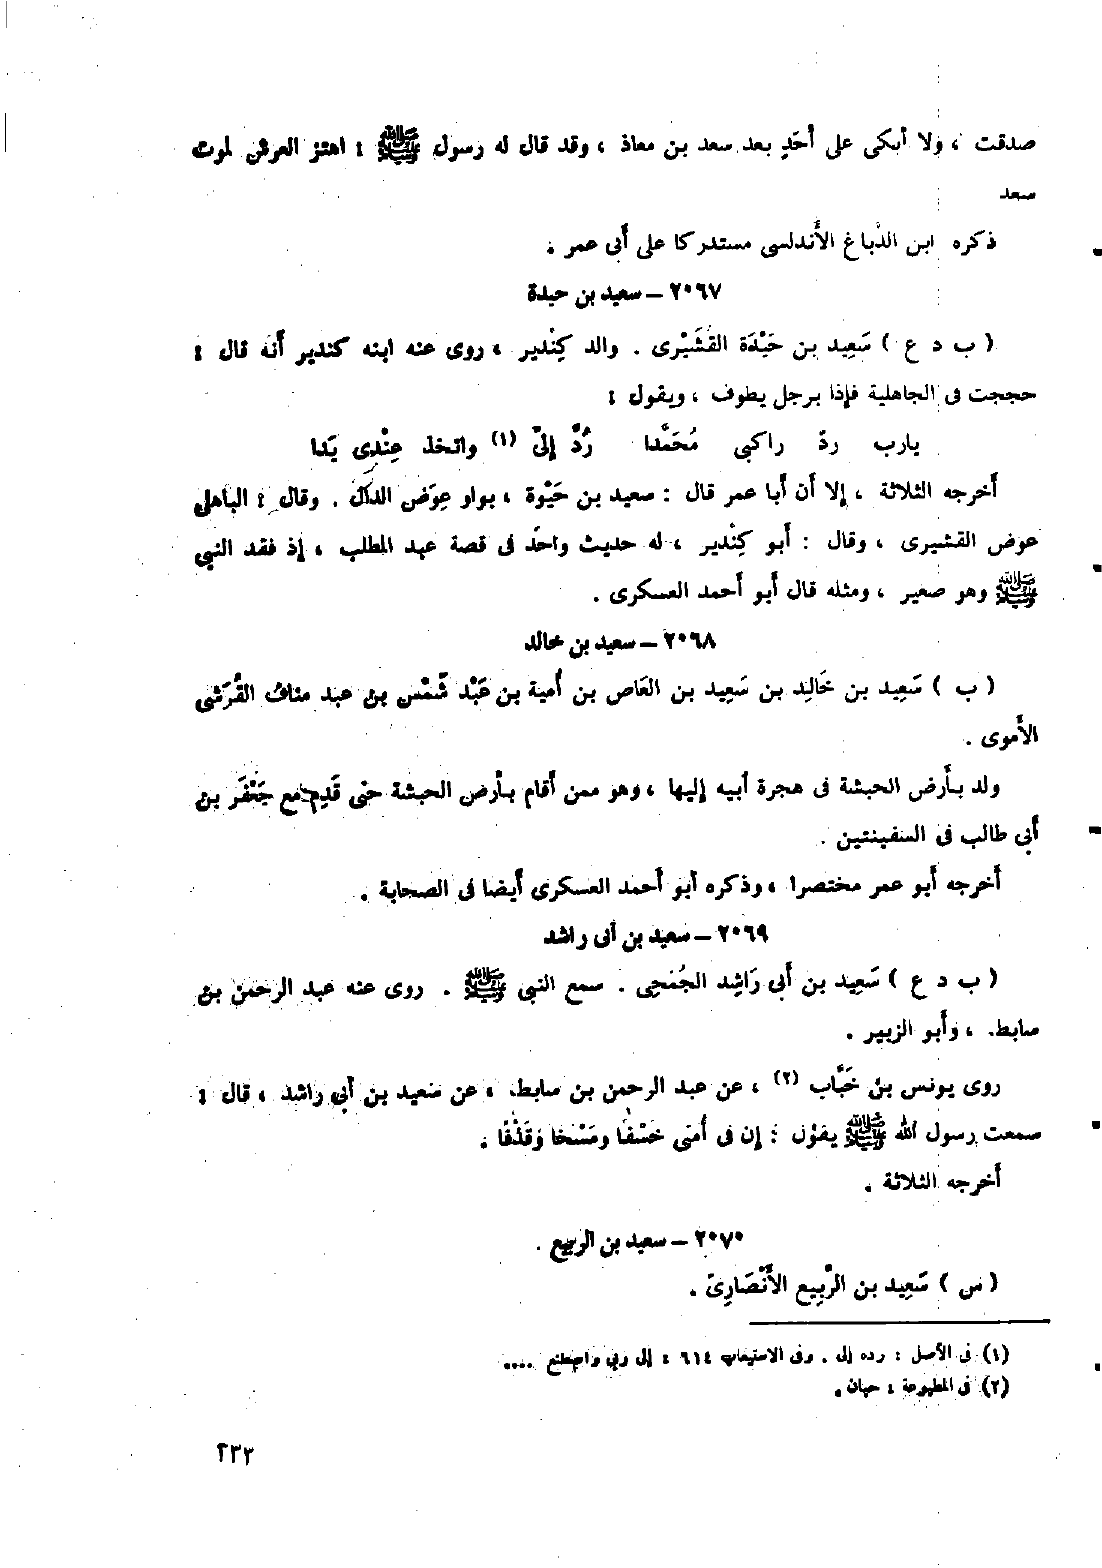 صدقت ، ولا أبكى على أَحَدٍ بعد سعد بن معاذ ، وقد قال له رسول ﷺ : اهتز العرش لموت
سعد
ذكره ابن الدَّباغ الأَندلسى مستدركا على أَبى عمر .
٢٠٦٧ – سعيد بن حيدة
( ب د ع ) سَعِيد بن حَيْدَة القُشَيْرى . والد كِنْدير ، روى عنه ابنه كندير أَنه قال :
حججت فى الجاهلية فإذا برجل يطوف ، ويقول :
يارب ردّ راكبى مُحَمَّدا رُدَّ إلىّ (١) واتخذ عِنْدِى يَدا
أَخرجه الثلاثة ، إلا أن أَبا عمر قال : سعيد بن حَيْوة ، بواو عِوَض الدال . وقال : الباهلى
عوض القشيرى ، وقال : أَبو كِنْدير ، له حديث واحد فى قصة عبد المطلب ، إذ فقد النبي
ﷺ وهو صغير ، ومثله قال أَبو أَحمد العسكرى .
٢٠٦٨ – سعيد بن خالد
( ب ) سَعِيد بن خَالِد بن سَعِيد بن العَاص بن أُمية بن عَبْد شَمْس بن عبد مناف القُرَشى
الأَموى .
ولد بأَرض الحبشة فى هجرة أبيه إليها ، وهو ممن أقام بأَرض الحبشة حتى قَدِم مع جَعْفَر بن
أَبى طالب فى السفينتين .
أَخرجه أَبو عمر مختصرا ، وذكره أبو أَحمد العسكرى أَيضا فى الصحابة .
٢٠٦٩ – سعيد بن أبى راشد
( ب د ع ) سَعِيد بن أَبى رَاشِد الجُمَحِى . سمع النبي ﷺ . روى عنه عبد الرحمن بن
سابط ، وأَبو الزبير .
روى يونس بن خَبَّاب (٢) ، عن عبد الرحمن بن سابط ، عن سعيد بن أبى راشد ، قال :
سمعت رسول الله ﷺ يقول : إن فى أُمتى خَسْفًا ومَسْخا وَقَذْفًا .
أَخرجه الثلاثة .
٢٠٧٠ – سعيد بن الربيع .
( س ) سَعِيد بن الرَّبِيع الأَنْصَارِىّ .
(١) فى الأصل : رده إلى . وفى الاستيعاب ٦١٤ : إلى ربي واصطنع ....
(٢) فى المطبوعة : حبان .
٢٣٣